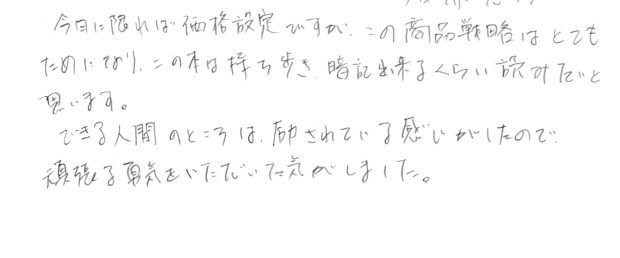 今日に限れば価格設定ですが、この商品戦略はとても
ためになり、この本は持ち歩き、暗記出来るくらい読みたいと
思います。
できる人間のところは、励まされている感じがしたので、
頑張る勇気をいただいた気がしました。